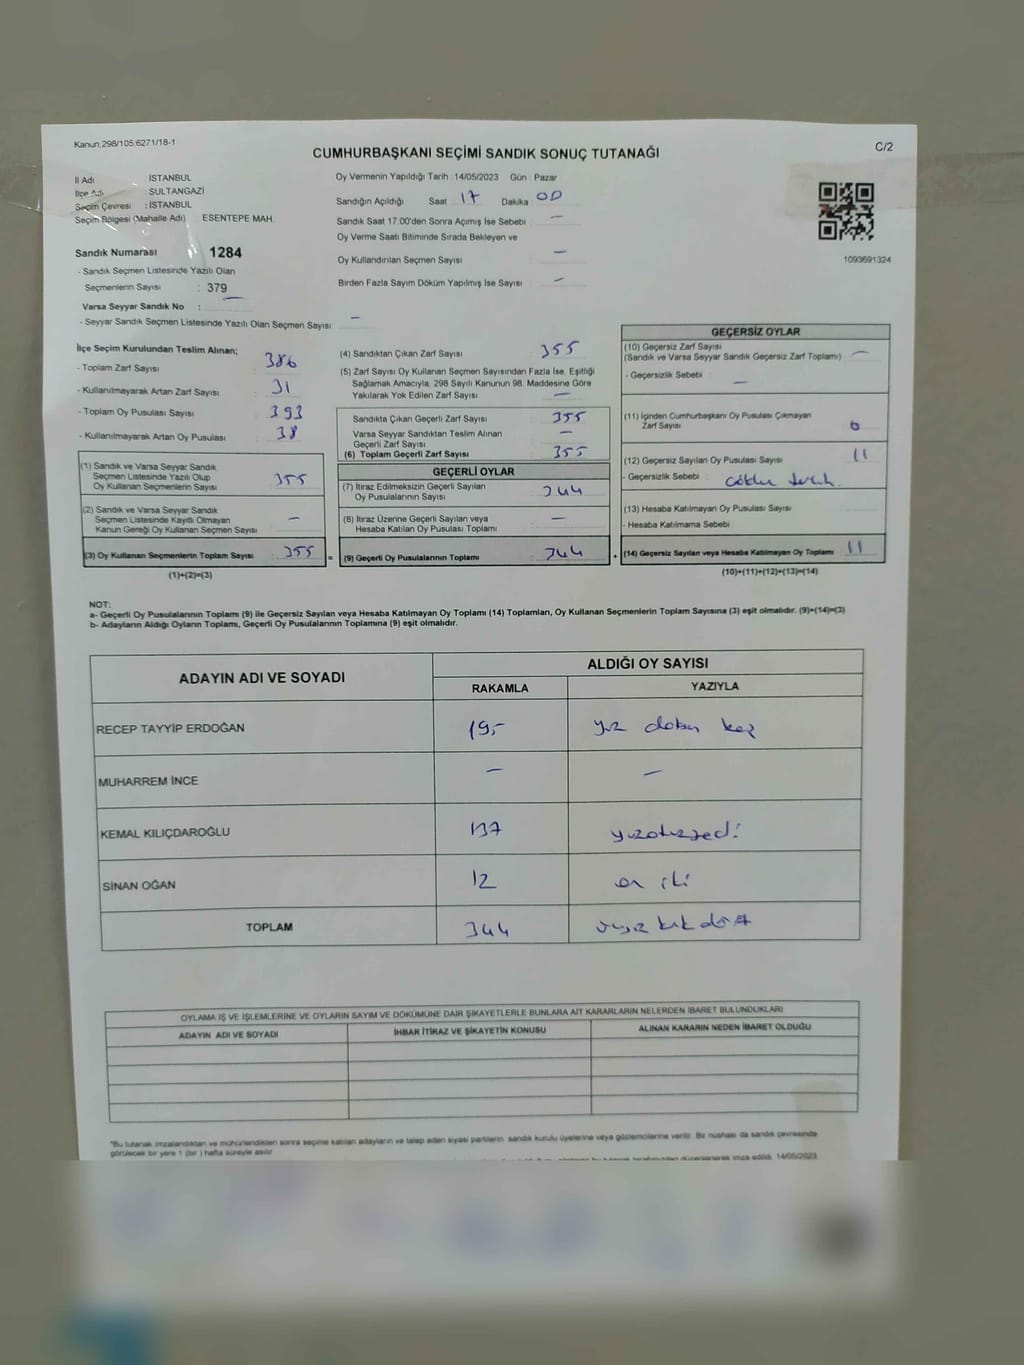 Kanun;298/105;6271/18-1
C/2
CUMHURBAŞKANI SEÇİMİ SANDIK SONUÇ TUTANAĞI
İl Adı İSTANBUL
İlçe Adı SULTANGAZİ
Seçim Çevresi : İSTANBUL
Seçim Bölgesi (Mahalle Adı) ESENTEPE MAH.
Sandık Numarası 1284
- Sandık Seçmen Listesinde Yazılı Olan
Seçmenlerin Sayısı : 379
Varsa Seyyar Sandık No : –
- Seyyar Sandık Seçmen Listesinde Yazılı Olan Seçmen Sayısı –
Oy Vermenin Yapıldığı Tarih : 14/05/2023 Gün : Pazar
Sandığın Açıldığı Saat 17 Dakika 00
Sandık Saat 17:00'den Sonra Açımış İse Sebebi –
Oy Verme Saati Bitiminde Sırada Bekleyen ve
Oy Kullandırılan Seçmen Sayısı –
Birden Fazla Sayım Döküm Yapılmış İse Sayısı –
1093691324
İlçe Seçim Kurulundan Teslim Alınan;
- Toplam Zarf Sayısı 386
- Kullanılmayarak Artan Zarf Sayısı 31
- Toplam Oy Pusulası Sayısı 393
- Kullanılmayarak Artan Oy Pusulası 38
(1) Sandık ve Varsa Seyyar Sandık
Seçmen Listesinde Yazılı Olup
Oy Kullanan Seçmenlerin Sayısı 355
(2) Sandık ve Varsa Seyyar Sandık
Seçmen Listesinde Kayıtlı Olmayan
Kanun Gereği Oy Kullanan Seçmen Sayısı –
(3) Oy Kullanan Seçmenlerin Toplam Sayısı 355 =
(1)+(2)=(3)
(4) Sandıktan Çıkan Zarf Sayısı 355
(5) Zarf Sayısı Oy Kullanan Seçmen Sayısından Fazla İse, Eşitliği
Sağlamak Amacıyla, 298 Sayılı Kanunun 98. Maddesine Göre
Yakılarak Yok Edilen Zarf Sayısı –
Sandıkta Çıkan Geçerli Zarf Sayısı 355
Varsa Seyyar Sandıktan Teslim Alınan
Geçerli Zarf Sayısı –
(6) Toplam Geçerli Zarf Sayısı 355
GEÇERLİ OYLAR
(7) İtiraz Edilmeksizin Geçerli Sayılan
Oy Pusulalarının Sayısı 344
(8) İtiraz Üzerine Geçerli Sayılan veya
Hesaba Katılan Oy Pusulası Toplamı –
(9) Geçerli Oy Pusulalarının Toplamı 344 +
GEÇERSİZ OYLAR
(10) Geçersiz Zarf Sayısı
(Sandık ve Varsa Seyyar Sandık Geçersiz Zarf Toplamı) –
- Geçersizlik Sebebi : –
(11) İçinden Cumhurbaşkanı Oy Pusulası Çıkmayan
Zarf Sayısı 0
(12) Geçersiz Sayılan Oy Pusulası Sayısı 11
- Geçersizlik Sebebi :
(13) Hesaba Katılmayan Oy Pusulası Sayısı
- Hesaba Katılmama Sebebi
(14) Geçersiz Sayılan veya Hesaba Katılmayan Oy Toplamı 11
(10)+(11)+(12)+(13)=(14)
NOT:
a- Geçerli Oy Pusulalarının Toplamı (9) ile Geçersiz Sayılan veya Hesaba Katılmayan Oy Toplamı (14) Toplamları, Oy Kullanan Seçmenlerin Toplam Sayısına (3) eşit olmalıdır. (9)+(14)=(3)
b- Adayların Aldığı Oyların Toplamı, Geçerli Oy Pusulalarının Toplamına (9) eşit olmalıdır.
ADAYIN ADI VE SOYADI ALDIĞI OY SAYISI
RAKAMLA YAZIYLA
RECEP TAYYİP ERDOĞAN 195 yüz doksan beş
MUHARREM İNCE – –
KEMAL KILIÇDAROĞLU 137 yüzotuzyedi
SİNAN OĞAN 12 on iki
TOPLAM 344 üçyüz kırk dört
OYLAMA İŞ VE İŞLEMLERİNE VE OYLARIN SAYIM VE DÖKÜMÜNE DAİR ŞİKAYETLERLE BUNLARA AİT KARARLARIN NELERDEN İBARET BULUNDUKLARI
ADAYIN ADI VE SOYADI İHBAR İTİRAZ VE ŞİKAYETİN KONUSU ALINAN KARARIN NEDEN İBARET OLDUĞU
*Bu tutanak imzalandıktan ve mühürlendikten sonra seçime katılan adayların ve talep eden siyasi partilerin sandık kurulu üyelerine veya gözlemcilerine verilir. Bir nüshası da sandık çevresinde
görülecek bir yere 1 (bir ) hafta süreyle asılır.
düzenlenerek imza edildi. 14/05/2023